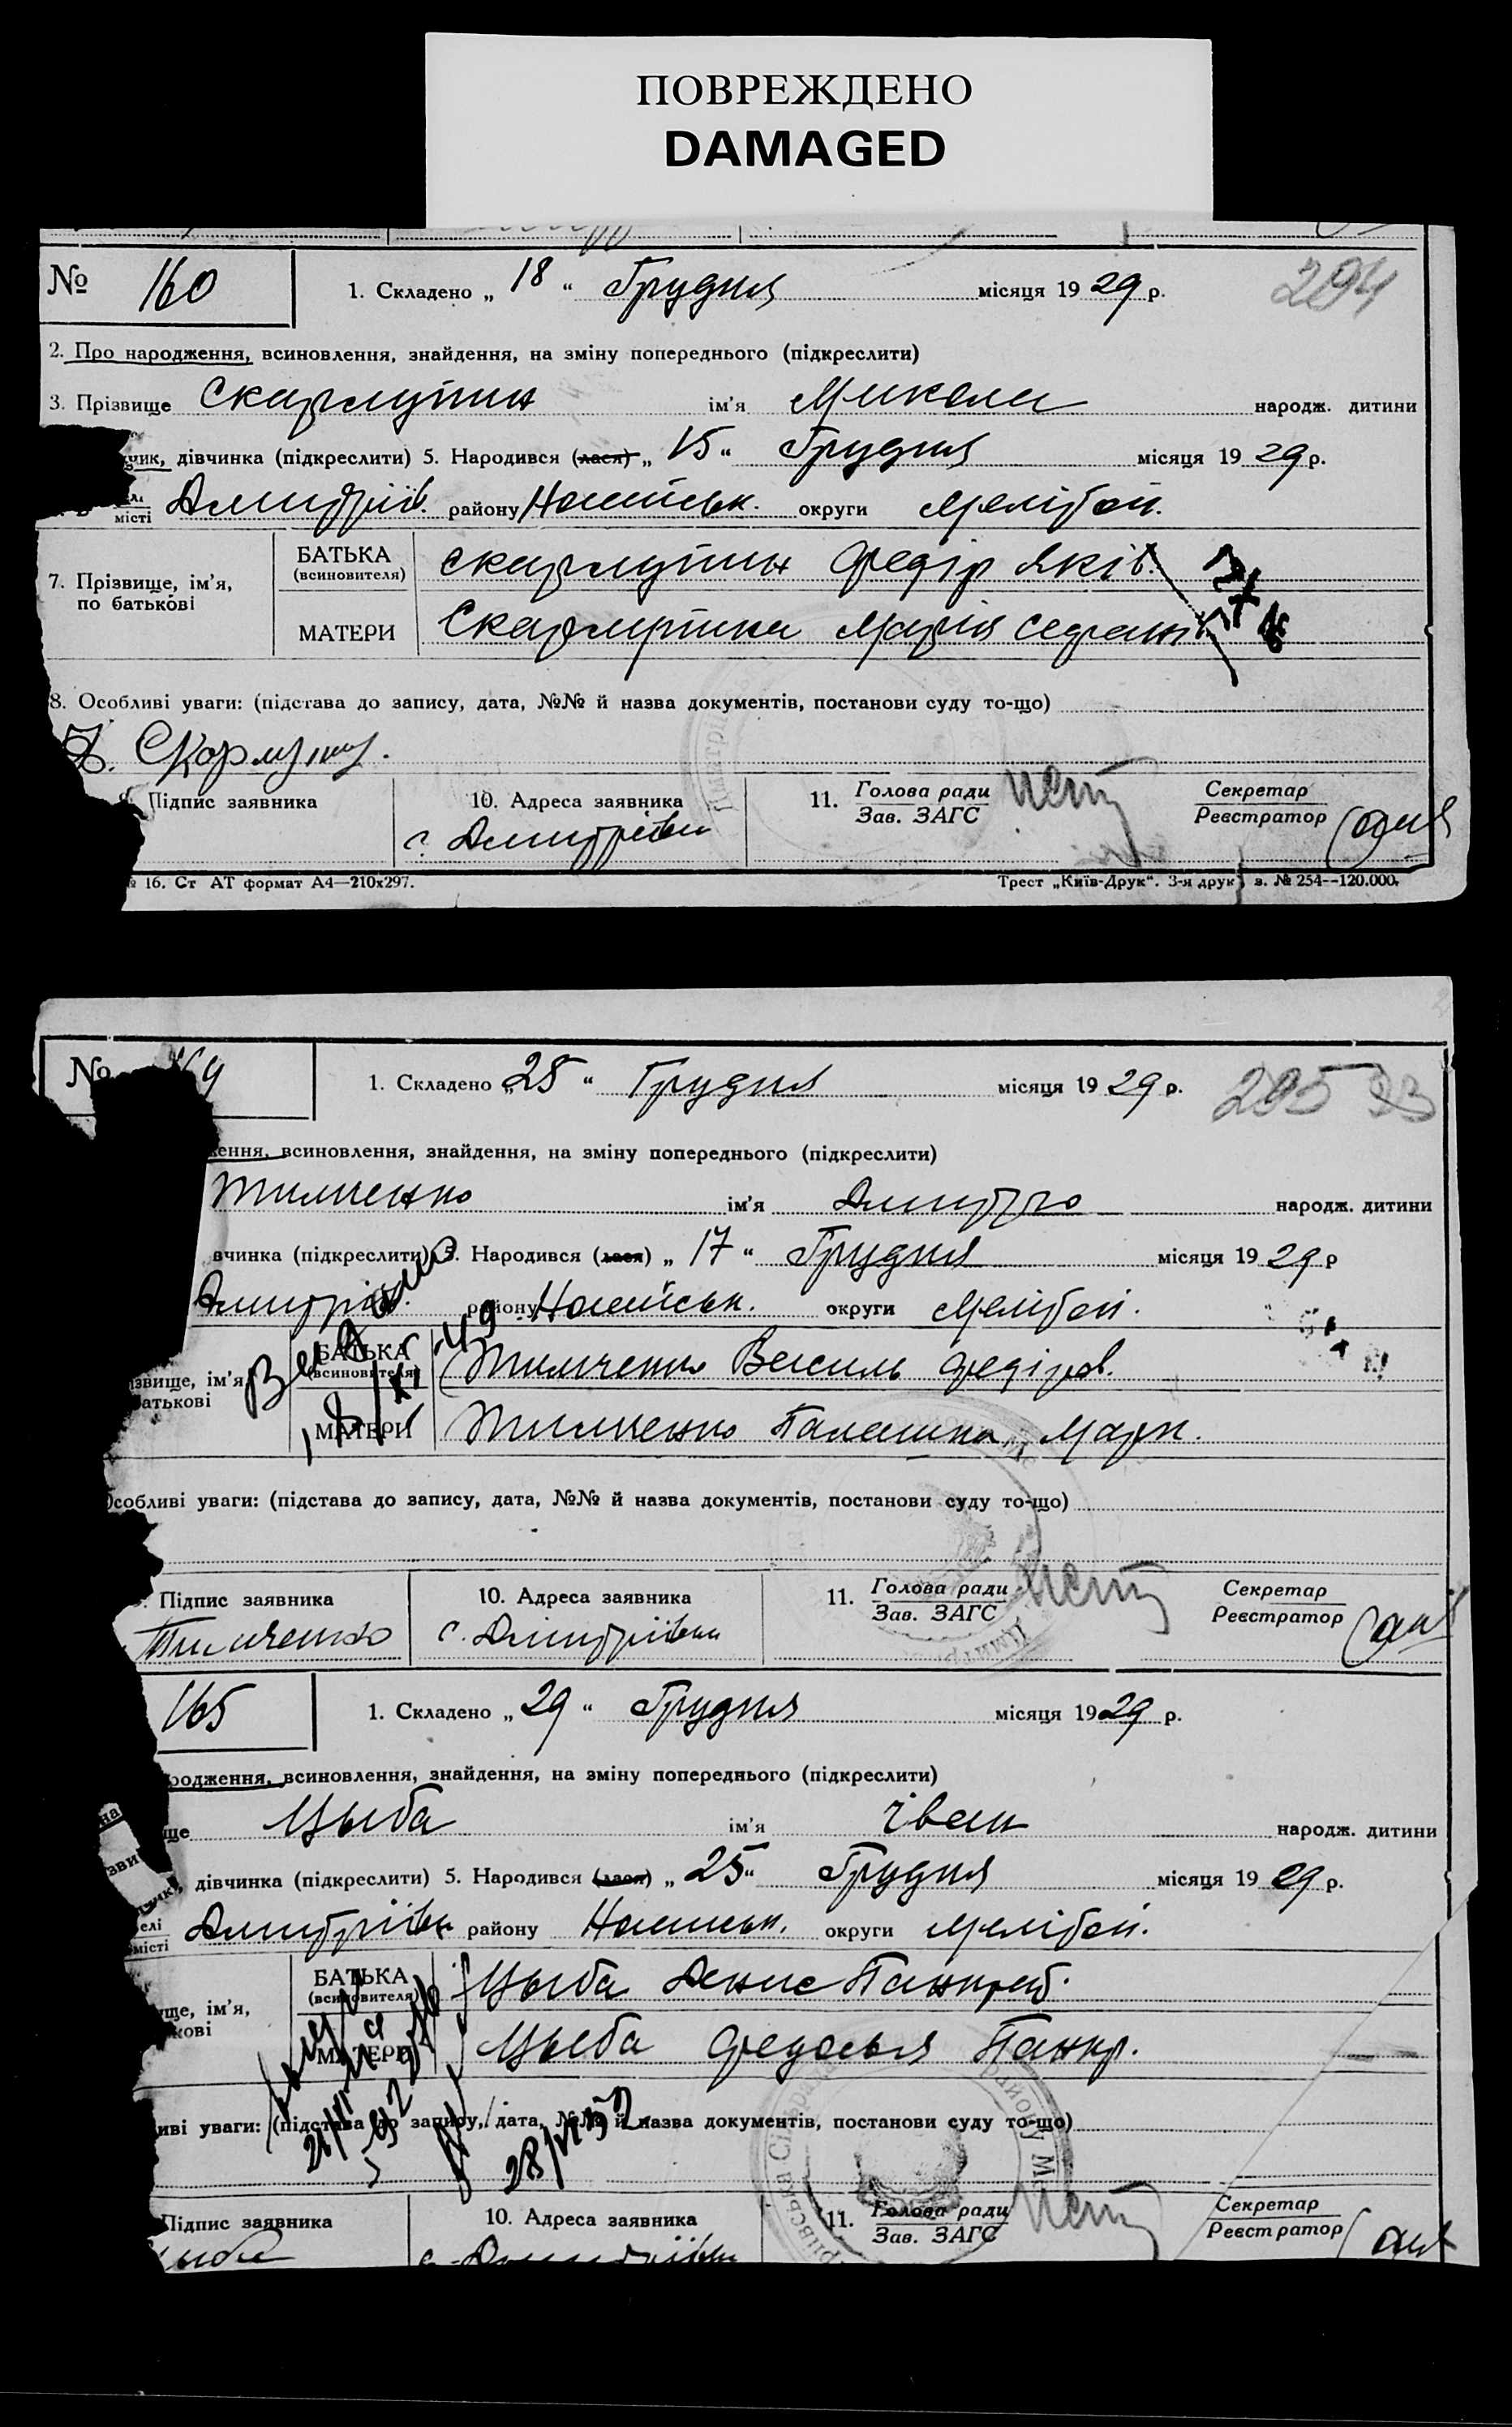 ПОВРЕЖДЕНО
DAMAGED
№ 160 1. Складено „ 18 “ Грудня місяця 19 29 р. 294
2. Про народження, всиновлення, знайдення, на зміну попереднього (підкреслити)
3. Прізвище ім’я Микола народж. дитини
чик, дівчинка (підкреслити) 5. Народився (лася) „ 15 “ Грудня місяця 19 29 р.
місті Дмитріїв. району округи Меліт
7. Прізвище, ім’я, по батькові
БАТЬКА (всиновителя) Федір Яків.
МАТЕРИ Марія
8. Особливі уваги: (підстава до запису, дата, №№ й назва документів, постанови суду то-що)
Підпис заявника 10. Адреса заявника 11. Голова ради Секретар
Зав. ЗАГС Реєстратор
с. Дмитрівка
№ 16. Ст АТ формат А4—210х297. Трест „Київ-Друк“. 3-я друк. з. № 254--120.000.
№ 1. Складено „ 25 “ Грудня місяця 19 29 р. 295 93
ження, всиновлення, знайдення, на зміну попереднього (підкреслити)
Тимченко ім’я Дмитро народж. дитини
вчинка (підкреслити) 5. Народився (лася) „ 17 “ Грудня місяця 19 29 р
Дмитріїв. району округи Меліт
звище, ім’я, батькові
БАТЬКА (всиновителя) Тимченко Василь Федіров.
МАТЕРИ Тимченко Палашка Марк.
Особливі уваги: (підстава до запису, дата, №№ й назва документів, постанови суду то-що)
Підпис заявника 10. Адреса заявника 11. Голова ради Секретар
Зав. ЗАГС Реєстратор
Тимченко с. Дмитріївка
165 1. Складено „ 29 “ Грудня місяця 19 29 р.
родження, всиновлення, знайдення, на зміну попереднього (підкреслити)
ще Цыба ім’я Іван народж. дитини
дівчинка (підкреслити) 5. Народився (лася) „ 25 “ Грудня місяця 19 29 р.
елі
місті Дмитріївк району округи Меліт
ще, ім’я,
кові
БАТЬКА (всиновителя) Цыба Денис Панкрат.
МАТЕРИ Цыба Федосья Панкр.
иві уваги: (підстава до запису, дата, №№ й назва документів, постанови суду то-що)
28/VI 52
Підпис заявника 10. Адреса заявника 11. Голова ради Секретар
Зав. ЗАГС Реєстратор
Цыба с. Дмитріївка